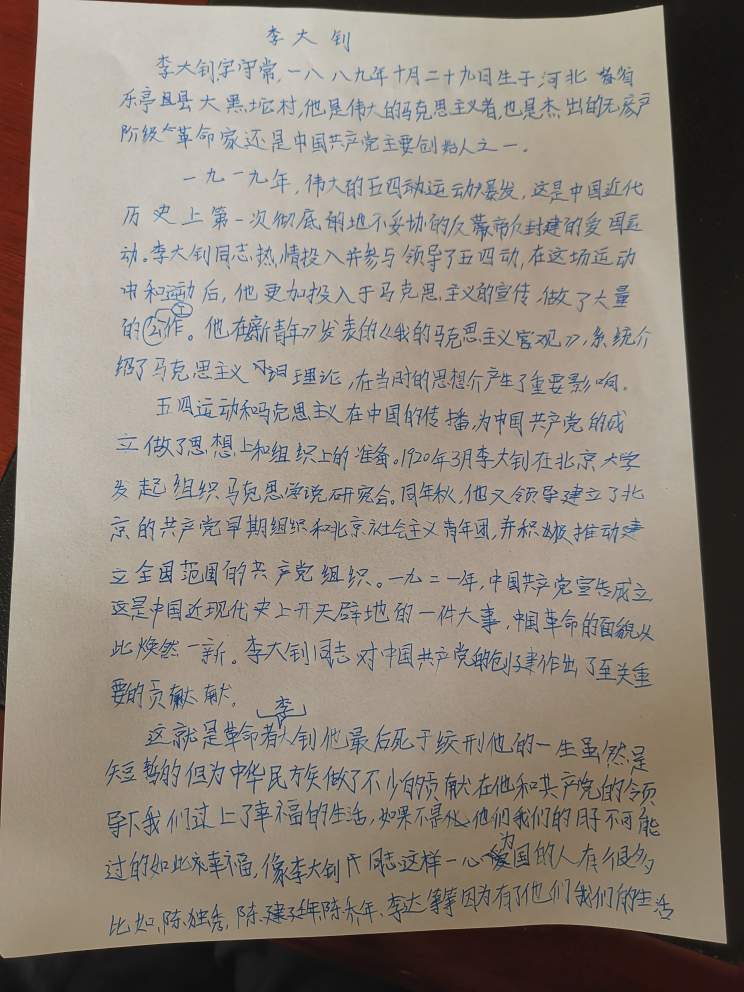 李大钊
李大钊字守常,一八八九年十月二十九日生于河北省
乐亭县大黑坨村,他是伟大的马克思主义者,也是杰出的无产
阶级革命家还是中国共产党主要创始人之一.
一九一九年,伟大的五四动运动爆发,这是中国近代
历史上第一次彻底的地不妥协的反帝反封建的爱国运
动。李大钊同志热情投入并参与领导了五四动,在这场运动
中和运动后,他更加投入于马克思主义的宣传,做了大量
的工作。他在新青年》发表的《我的马克思主义官观》,系统介
绍了马克思主义理论,在当时的思想介产生了重要影响。
五四运动和马克思主义在中国的传播,为中国共产党的成
立做了思想上和组织上的准备。1920年3月李大钊在北京大学
发起组织马克思学说研究会。同年秋,他又领导建立了北
京的共产党早期组织和北京社会主义青年团,并积极推动建
立全国范围的共产党组织。一九二一年,中国共产党宣告成立
这是中国近现代史上开天辟地的一件大事,中国革命的面貌从
此焕然一新。李大钊同志对中国共产党的创建作出了至关重
要的贡献献.
这就是革命者李大钊他最后死于绞刑他的一生虽然是
短暂的但为中华民族做了不少的贡献在他和共产党的领
导下我们过上了幸福的生活,如果不是他们我们的日子不可能
过的如此幸福,像李大钊同志这样一心为国的人有很多
比如,陈独秀,陈延年,陈乔年、李达等等因为有了他们我们的生活